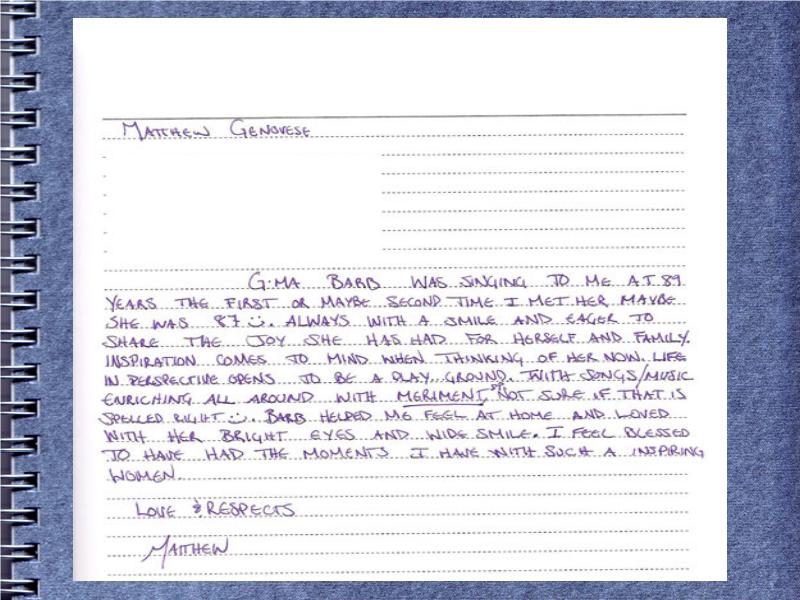 MATTHEW GENOVESE
G:MA BARB WAS SINGING TO ME AT 89
YEARS THE FIRST OR MAYBE SECOND TIME I MET HER MAYBE
SHE WAS 87 :). ALWAYS WITH A SMILE AND EAGER TO
SHARE THE JOY SHE HAS HAD FOR HERSELF AND FAMILY.
INSPIRATION COMES TO MIND WHEN THINKING OF HER NOW. LIFE
IN PERSPECTIVE OPENS TO BE A PLAY GROUND. WITH SONGS/MUSIC
ENRICHING ALL AROUND WITH MERIMENT NOT SURE IF THAT IS
SPELLED RIGHT :). BARB HELPED ME FEEL AT HOME AND LOVED
WITH HER BRIGHT EYES AND WIDE SMILE. I FEEL BLESSED
TO HAVE HAD THE MOMENTS I HAVE WITH SUCH A INSPIRING
WOMEN.
LOVE & RESPECTS
MATTHEW